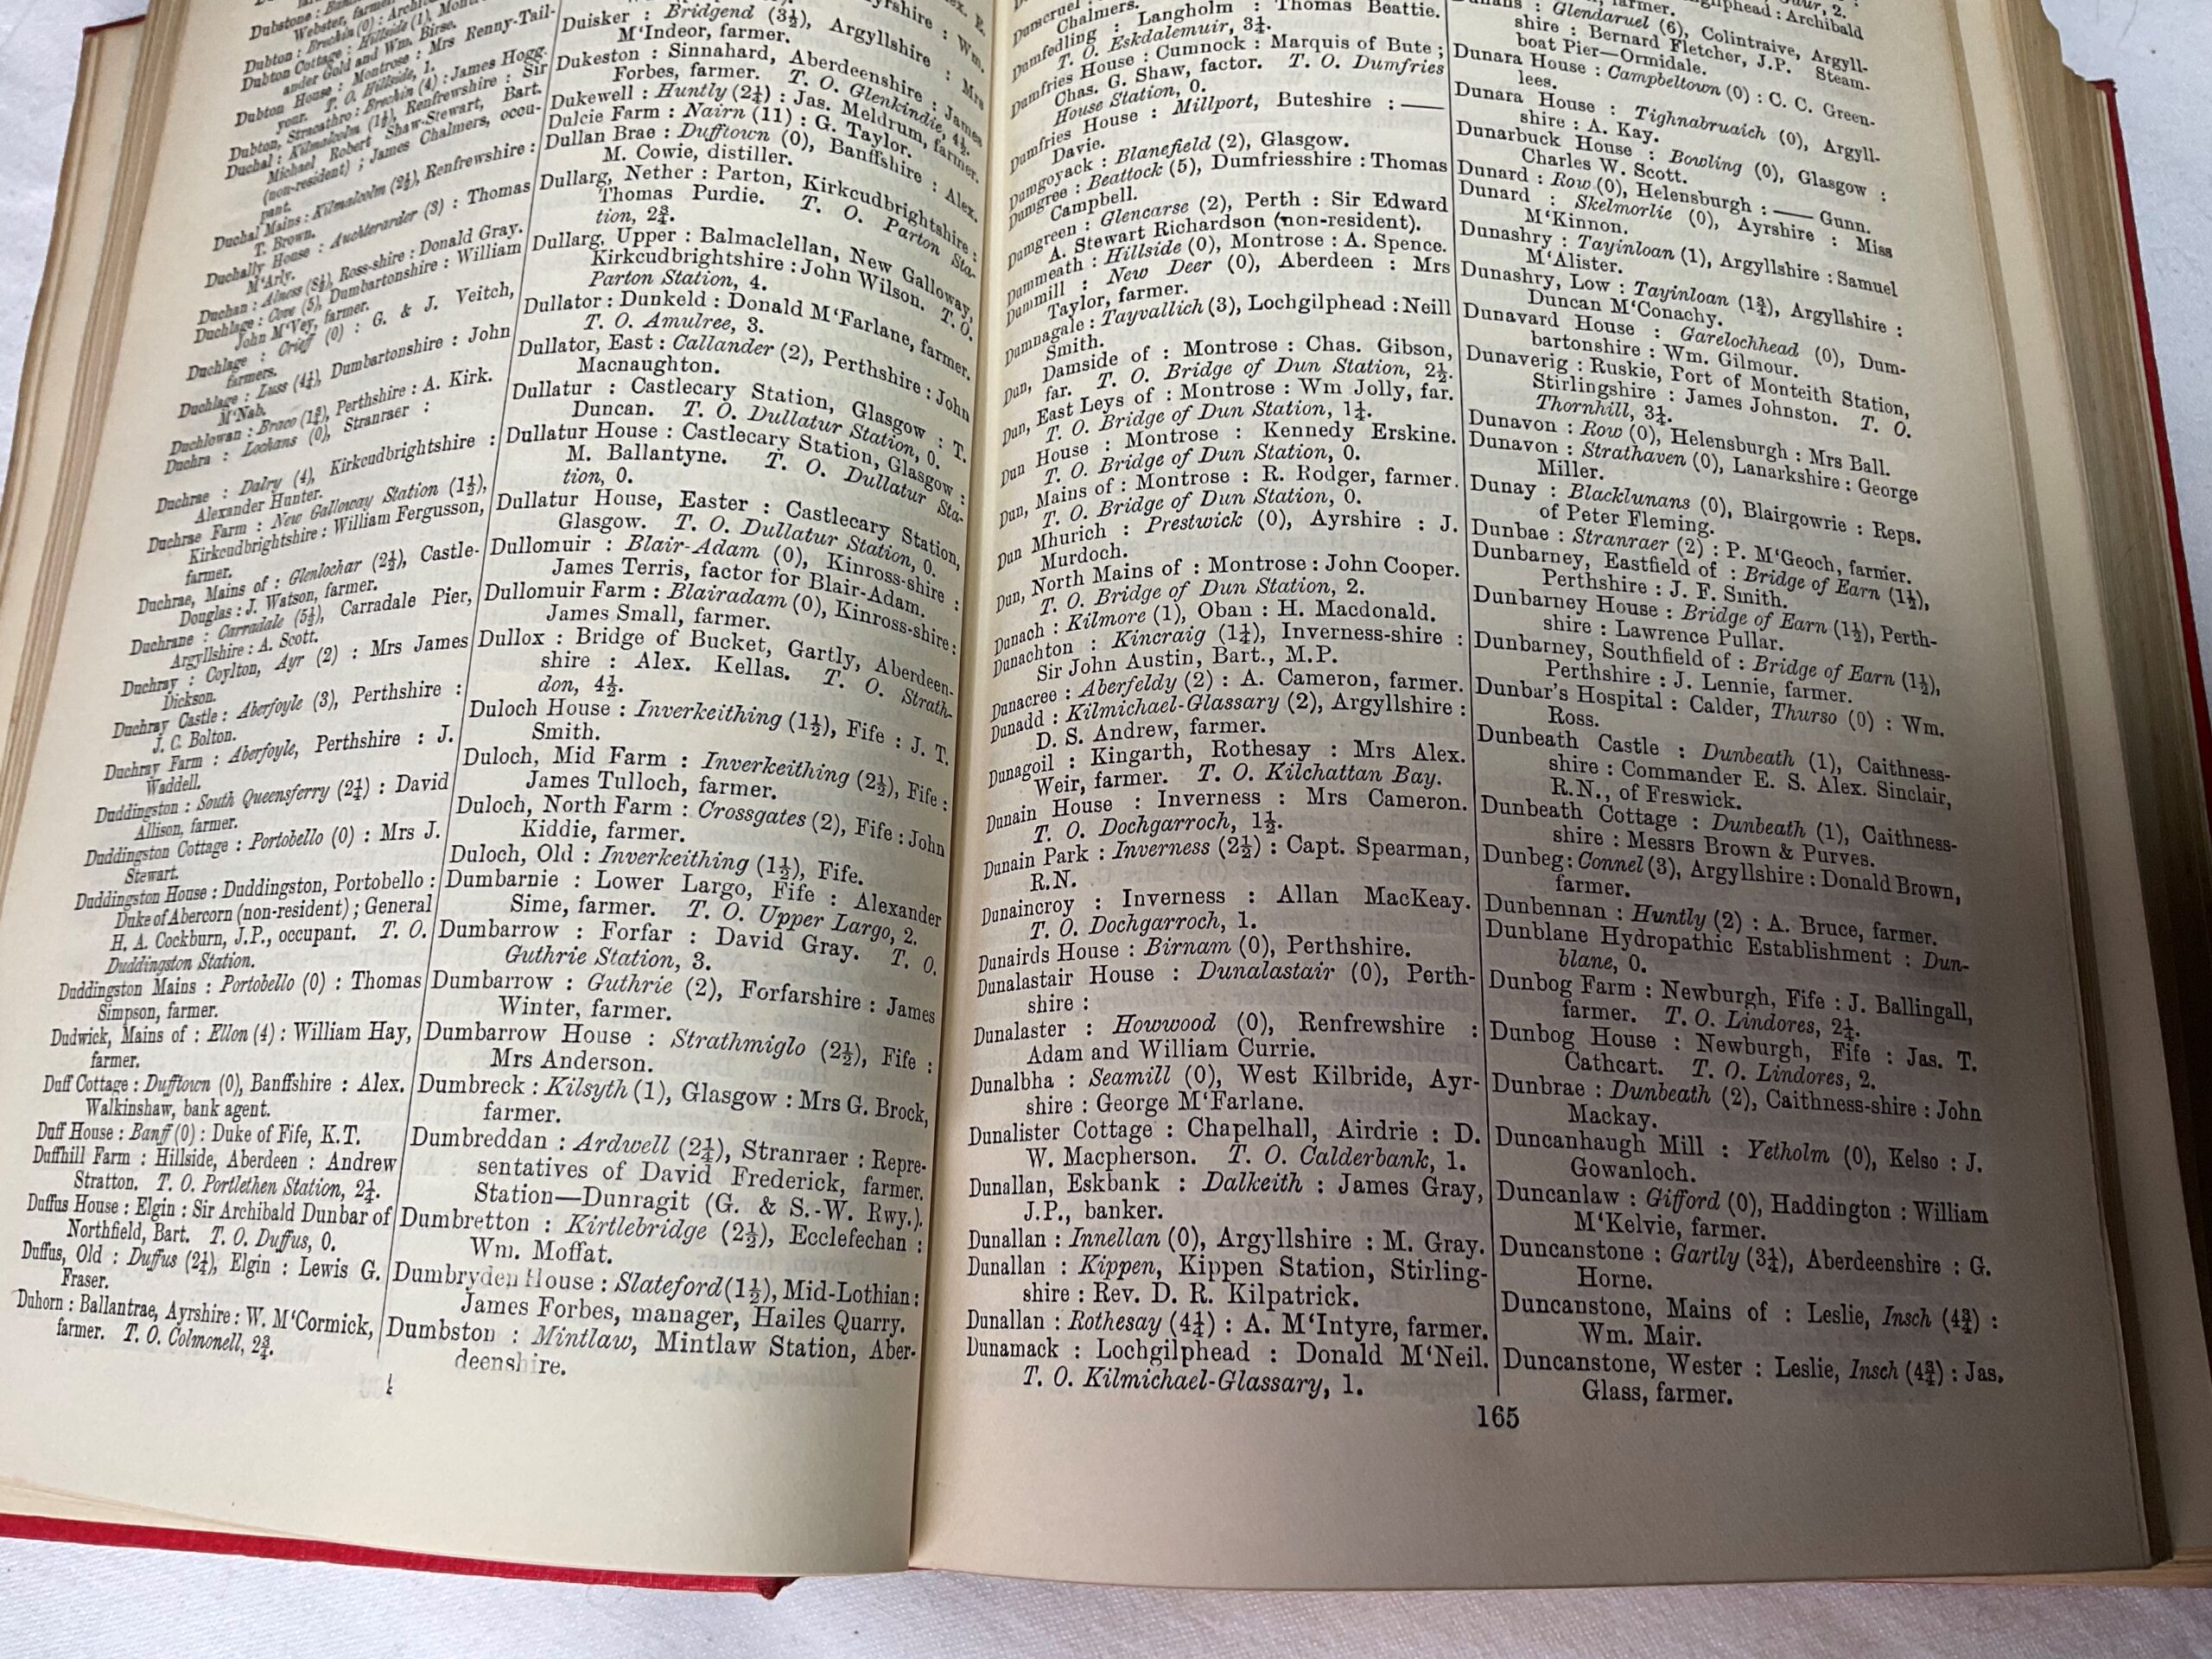 Dubton Cottage : Hillside (1),
Dubton House : Montrose : Mrs Renny-Tail-
your. T. O. Hillside, 1.
Dubton, Stracathro : Brechin (4) : James Hogg.
Duchal : Kilmalcolm (1½), Renfrewshire : Sir
Michael Robert Shaw-Stewart, Bart.
(non-resident) ; James Chalmers, occu-
pant.
Duchal Mains : Kilmalcolm (2½), Renfrewshire :
T. Brown.
Duchally House : Auchterarder (3) : Thomas
M‘Arly.
Duchan : Alness (8½), Ross-shire : Donald Gray.
Duchlage : Cove (5), Dumbartonshire : William
John M‘Vey, farmer.
Duchlage : Crieff (0) : G. & J. Veitch,
farmers.
Duchlage : Luss (4¼), Dumbartonshire : John
M‘Nab.
Duchlowan : Braco (1¾), Perthshire : A. Kirk.
Duchra : Lochans (0), Stranraer :
Duchrae : Dalry (4), Kirkcudbrightshire :
Alexander Hunter.
Duchrae Farm : New Galloway Station (1½),
Kirkcudbrightshire : William Fergusson,
farmer.
Duchrae, Mains of : Glenlochar (2½), Castle-
Douglas : J. Watson, farmer.
Duchrane : Carradale (5½), Carradale Pier,
Argyllshire : A. Scott.
Duchray : Coylton, Ayr (2) : Mrs James
Dickson.
Duchray Castle : Aberfoyle (3), Perthshire :
J. C. Bolton.
Duchray Farm : Aberfoyle, Perthshire : J.
Waddell.
Duddingston : South Queensferry (2¼) : David
Allison, farmer.
Duddingston Cottage : Portobello (0) : Mrs J.
Stewart.
Duddingston House : Duddingston, Portobello :
Duke of Abercorn (non-resident) ; General
H. A. Cockburn, J.P., occupant. T. O.
Duddingston Station.
Duddingston Mains : Portobello (0) : Thomas
Simpson, farmer.
Dudwick, Mains of : Ellon (4) : William Hay,
farmer.
Duff Cottage : Dufftown (0), Banffshire : Alex.
Walkinshaw, bank agent.
Duff House : Banff (0) : Duke of Fife, K.T.
Duffhill Farm : Hillside, Aberdeen : Andrew
Stratton. T. O. Portlethen Station, 2¼.
Duffus House : Elgin : Sir Archibald Dunbar of
Northfield, Bart. T. O. Duffus, 0.
Duffus, Old : Duffus (2¼), Elgin : Lewis G.
Fraser.
Duhorn : Ballantrae, Ayrshire : W. M‘Cormick,
farmer. T. O. Colmonell, 2¾.
Duisker : Bridgend (3½), Argyllshire : Mrs
M‘Indeor, farmer.
Dukeston : Sinnahard, Aberdeenshire : James
Forbes, farmer. T. O. Glenkindie, 4½.
Dukewell : Huntly (2¼) : Jas. Meldrum, farmer.
Dulcie Farm : Nairn (11) : G. Taylor.
Dullan Brae : Dufftown (0), Banffshire : Alex.
M. Cowie, distiller.
Dullarg, Nether : Parton, Kirkcudbrightshire :
Thomas Purdie. T. O. Parton Sta-
tion, 2¾.
Dullarg, Upper : Balmaclellan, New Galloway,
Kirkcudbrightshire : John Wilson. T. O.
Parton Station, 4.
Dullator : Dunkeld : Donald M‘Farlane, farmer.
T. O. Amulree, 3.
Dullator, East : Callander (2), Perthshire : John
Macnaughton.
Dullatur : Castlecary Station, Glasgow : T.
Duncan. T. O. Dullatur Station, 0.
Dullatur House : Castlecary Station, Glasgow :
M. Ballantyne. T. O. Dullatur Sta-
tion, 0.
Dullatur House, Easter : Castlecary Station,
Glasgow. T. O. Dullatur Station, 0.
Dullomuir : Blair-Adam (0), Kinross-shire :
James Terris, factor for Blair-Adam.
Dullomuir Farm : Blairadam (0), Kinross-shire :
James Small, farmer.
Dullox : Bridge of Bucket, Gartly, Aberdeen-
shire : Alex. Kellas. T. O. Strath-
don, 4½.
Duloch House : Inverkeithing (1½), Fife : J. T.
Smith.
Duloch, Mid Farm : Inverkeithing (2½), Fife :
James Tulloch, farmer.
Duloch, North Farm : Crossgates (2), Fife : John
Kiddie, farmer.
Duloch, Old : Inverkeithing (1½), Fife.
Dumbarnie : Lower Largo, Fife : Alexander
Sime, farmer. T. O. Upper Largo, 2.
Dumbarrow : Forfar : David Gray. T. O.
Guthrie Station, 3.
Dumbarrow : Guthrie (2), Forfarshire : James
Winter, farmer.
Dumbarrow House : Strathmiglo (2½), Fife :
Mrs Anderson.
Dumbreck : Kilsyth (1), Glasgow : Mrs G. Brock,
farmer.
Dumbreddan : Ardwell (2¼), Stranraer : Repre-
sentatives of David Frederick, farmer.
Station—Dunragit (G. & S.-W. Rwy.).
Dumbretton : Kirtlebridge (2½), Ecclefechan :
Wm. Moffat.
Dumbryden House : Slateford (1½), Mid-Lothian :
James Forbes, manager, Hailes Quarry.
Dumbston : Mintlaw, Mintlaw Station, Aber-
deenshire.
Chalmers.
Dumfedling : Langholm : Thomas Beattie.
T. O. Eskdalemuir, 3¼.
Dumfries House : Cumnock : Marquis of Bute ;
Chas. G. Shaw, factor. T. O. Dumfries
House Station, 0.
Dumfries House : Millport, Buteshire : ——
Davie.
Dumgoyack : Blanefield (2), Glasgow.
Dumgree : Beattock (5), Dumfriesshire : Thomas
Campbell.
Dumgreen : Glencarse (2), Perth : Sir Edward
A. Stewart Richardson (non-resident).
Dummeath : Hillside (0), Montrose : A. Spence.
Dummill : New Deer (0), Aberdeen : Mrs
Taylor, farmer.
Dumnagale : Tayvallich (3), Lochgilphead : Neill
Smith.
Dun, Damside of : Montrose : Chas. Gibson,
far. T. O. Bridge of Dun Station, 2½.
Dun, East Leys of : Montrose : Wm Jolly, far.
T. O. Bridge of Dun Station, 1¼.
Dun House : Montrose : Kennedy Erskine.
T. O. Bridge of Dun Station, 0.
Dun, Mains of : Montrose : R. Rodger, farmer.
T. O. Bridge of Dun Station, 0.
Dun Mhurich : Prestwick (0), Ayrshire : J.
Murdoch.
Dun, North Mains of : Montrose : John Cooper.
T. O. Bridge of Dun Station, 2.
Dunach : Kilmore (1), Oban : H. Macdonald.
Dunachton : Kincraig (1¼), Inverness-shire :
Sir John Austin, Bart., M.P.
Dunacree : Aberfeldy (2) : A. Cameron, farmer.
Dunadd : Kilmichael-Glassary (2), Argyllshire :
D. S. Andrew, farmer.
Dunagoil : Kingarth, Rothesay : Mrs Alex.
Weir, farmer. T. O. Kilchattan Bay.
Dunain House : Inverness : Mrs Cameron.
T. O. Dochgarroch, 1½.
Dunain Park : Inverness (2½) : Capt. Spearman,
R.N.
Dunaincroy : Inverness : Allan MacKeay.
T. O. Dochgarroch, 1.
Dunairds House : Birnam (0), Perthshire.
Dunalastair House : Dunalastair (0), Perth-
shire :
Dunalaster : Howwood (0), Renfrewshire :
Adam and William Currie.
Dunalbha : Seamill (0), West Kilbride, Ayr-
shire : George M‘Farlane.
Dunalister Cottage : Chapelhall, Airdrie : D.
W. Macpherson. T. O. Calderbank, 1.
Dunallan, Eskbank : Dalkeith : James Gray,
J.P., banker.
Dunallan : Innellan (0), Argyllshire : M. Gray.
Dunallan : Kippen, Kippen Station, Stirling-
shire : Rev. D. R. Kilpatrick.
Dunallan : Rothesay (4¼) : A. M‘Intyre, farmer.
Dunamack : Lochgilphead : Donald M‘Neil.
T. O. Kilmichael-Glassary, 1.
Glendaruel (6), Colintraive, Argyll-
shire : Bernard Fletcher, J.P. Steam-
boat Pier—Ormidale.
Dunara House : Campbeltown (0) : C. C. Green-
lees.
Dunara House : Tighnabruaich (0), Argyll-
shire : A. Kay.
Dunarbuck House : Bowling (0), Glasgow :
Charles W. Scott.
Dunard : Row (0), Helensburgh : —— Gunn.
Dunard : Skelmorlie (0), Ayrshire : Miss
M‘Kinnon.
Dunashry : Tayinloan (1), Argyllshire : Samuel
M‘Alister.
Dunashry, Low : Tayinloan (1¾), Argyllshire :
Duncan M‘Conachy.
Dunavard House : Garelochhead (0), Dum-
bartonshire : Wm. Gilmour.
Dunaverig : Ruskie, Port of Monteith Station,
Stirlingshire : James Johnston. T. O.
Thornhill, 3¼.
Dunavon : Row (0), Helensburgh : Mrs Ball.
Dunavon : Strathaven (0), Lanarkshire : George
Miller.
Dunay : Blacklunans (0), Blairgowrie : Reps.
of Peter Fleming.
Dunbae : Stranraer (2) : P. M‘Geoch, farmer.
Dunbarney, Eastfield of : Bridge of Earn (1½),
Perthshire : J. F. Smith.
Dunbarney House : Bridge of Earn (1½), Perth-
shire : Lawrence Pullar.
Dunbarney, Southfield of : Bridge of Earn (1½),
Perthshire : J. Lennie, farmer.
Dunbar's Hospital : Calder, Thurso (0) : Wm.
Ross.
Dunbeath Castle : Dunbeath (1), Caithness-
shire : Commander E. S. Alex. Sinclair,
R.N., of Freswick.
Dunbeath Cottage : Dunbeath (1), Caithness-
shire : Messrs Brown & Purves.
Dunbeg : Connel (3), Argyllshire : Donald Brown,
farmer.
Dunbennan : Huntly (2) : A. Bruce, farmer.
Dunblane Hydropathic Establishment : Dun-
blane, 0.
Dunbog Farm : Newburgh, Fife : J. Ballingall,
farmer. T. O. Lindores, 2¼.
Dunbog House : Newburgh, Fife : Jas. T.
Cathcart. T. O. Lindores, 2.
Dunbrae : Dunbeath (2), Caithness-shire : John
Mackay.
Duncanhaugh Mill : Yetholm (0), Kelso : J.
Gowanloch.
Duncanlaw : Gifford (0), Haddington : William
M‘Kelvie, farmer.
Duncanstone : Gartly (3¼), Aberdeenshire : G.
Horne.
Duncanstone, Mains of : Leslie, Insch (4¾) :
Wm. Mair.
Duncanstone, Wester : Leslie, Insch (4¾) : Jas.
Glass, farmer.
165